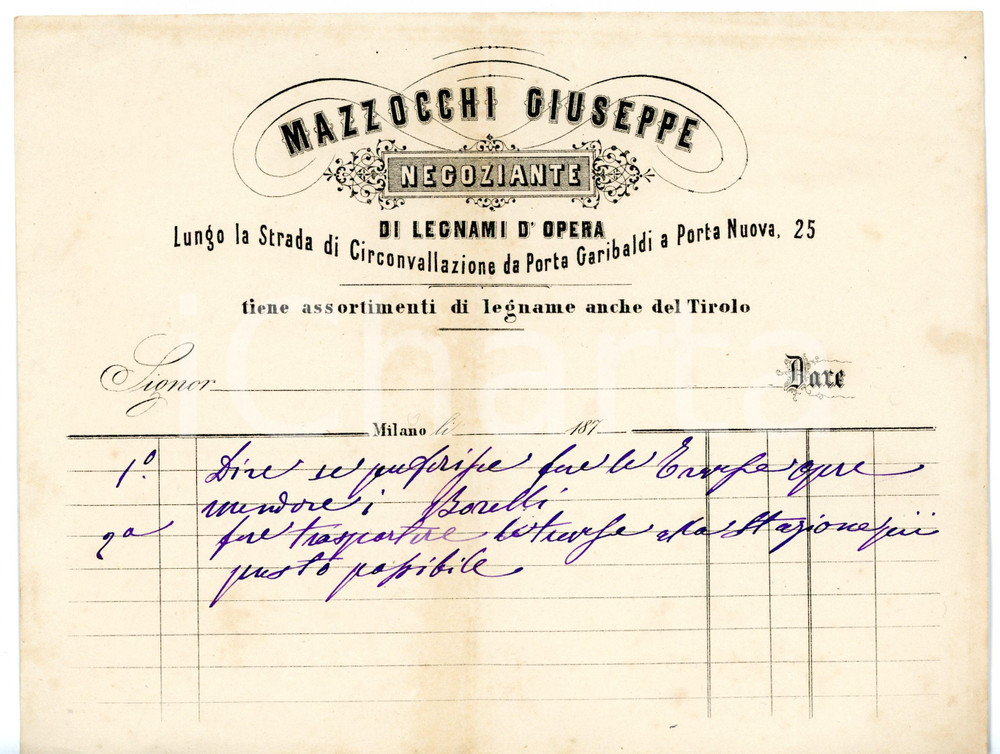 MAZZOCCHI GIUSEPPE
NEGOZIANTE
DI LEGNAMI D'OPERA
Lungo la Strada di Circonvallazione da Porta Garibaldi a Porta Nuova, 25
tiene assortimenti di legname anche del Tirolo
Signor Dare
Milano li 187
1º. Dire se fare le
i Borelli
2ª fare trasportare la Stazione più
presto possibile
iCharta